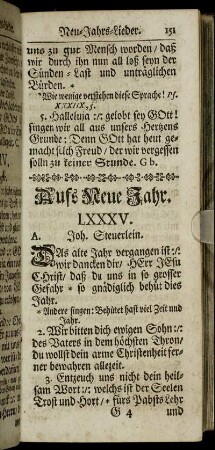 Neu-Jahrs-Lieder. 151
uns zu gut Mensch worden / daß
wir durch ihn nun all loß seyn der
Sünden-Last und unträglichen
Bürden. *
* Wie wenige verstehen diese Sprache! Ps.
5. Halleluja :/: gelobt sey GOtt!
singen wir all aus unsers Hertzens
Grunde: Denn GOtt hat heut ge-
macht solch Freud / der wir vergessen
solln zu keiner Stunde. G b.
Aufs Neue Jahr.
LXXXV.
A. Joh. Steuerlein.
DAs alte Jahr vergangen ist :/:
wir dancken dir / HErr JEsu
Christ / daß du uns in so grosser
Gefahr * so gnädiglich behüt dies
Jahr.
* Andere singen: Behütet hast viel Zeit und
Jahr.
2. Wir bitten dich ewigen Sohn :/:
des Vaters in dem höchsten Thron /
du wollst dein arme Christenheit fer-
ner bewahren allezeit.
3. Entzeuch uns nicht dein heil-
sam Wort :/: welchs ist der Seelen
Trost und Hort / * fürs Pabsts Lehr
G 4 und